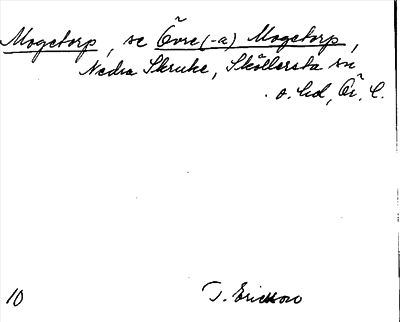 Mogetorp, se Övre (-a) Mogetorp,
Nedra Skruke, Sköllersta sn
o. hd, Ör. l.
10 T. Ericsson